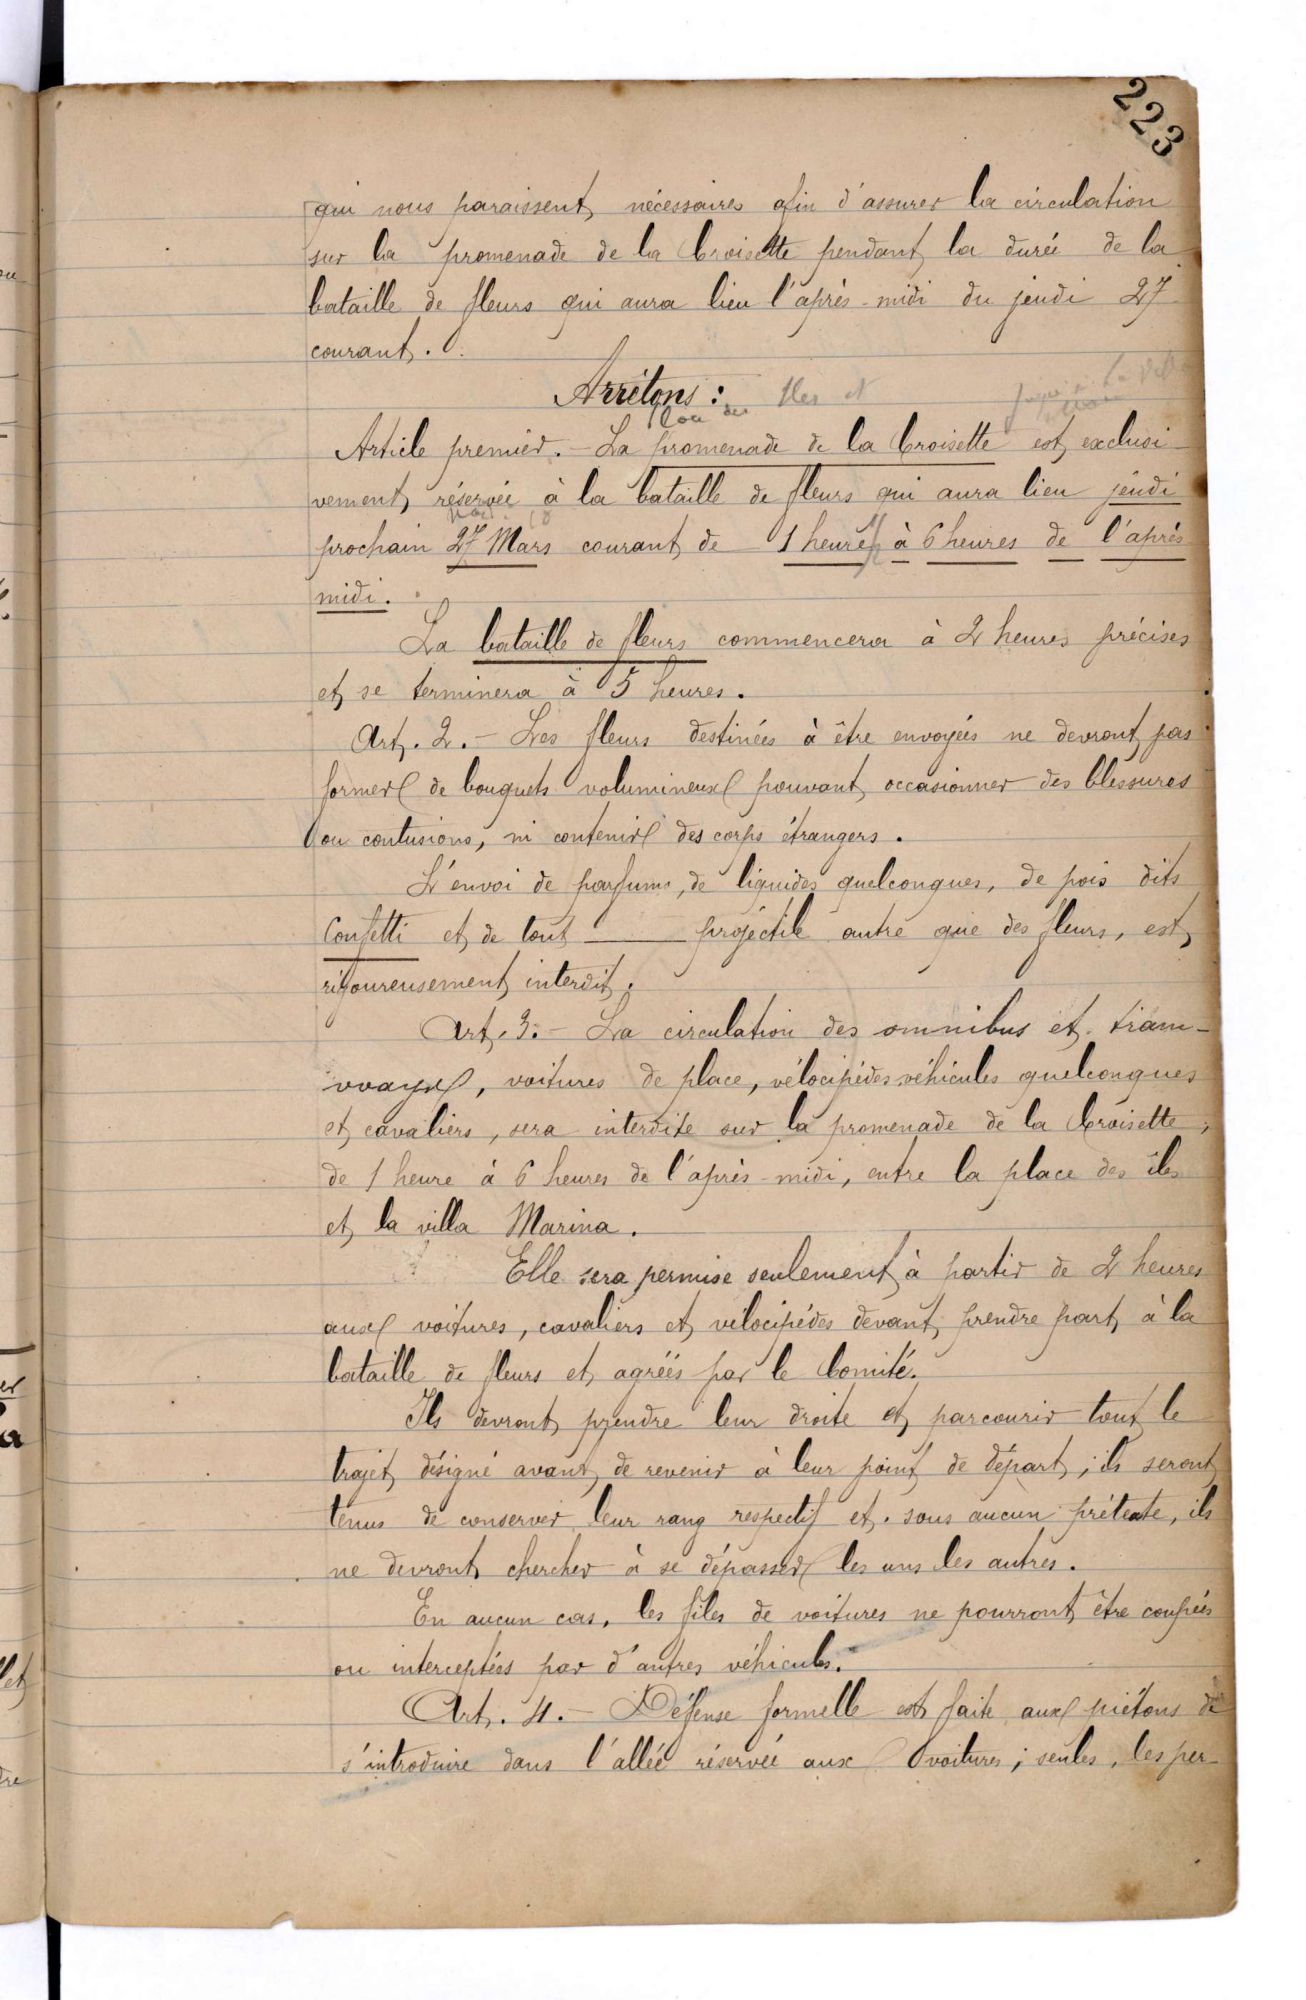 223
qui nous paraissent nécessaires afin d'assurer la circulation
sur la promenade de la Croisette pendant la durée de la
bataille de fleurs qui aura lieu l'après-midi du jeudi 27
courant.
Arrêtons : Iles et
Article premier. - La promenade de la Croisette est exclusi-
vement réservée à la bataille de fleurs qui aura lieu jeudi
prochain 27 Mars courant de 1 heure à 6 heures de l'après
midi.
La bataille de fleurs commencera à 2 heures précises
et se terminera à 5 heures.
Art. 2. - Les fleurs destinées à être envoyées ne devront pas
former de bouquets volumineux pouvant occasionner des blessures
ou contusions, ni contenir des corps étrangers.
L'envoi de parfums, de liquides quelconques, de pois dits
Confetti et de tout ——— projectile autre que des fleurs, est
rigoureusement interdit.
Art. 3. - La circulation des omnibus et tram-
ways, voitures de place, vélocipèdes véhicules quelconques
et cavaliers, sera interdite sur la promenade de la Croisette,
de 1 heure à 6 heures de l'après-midi, entre la place des îles
et la villa Marina.
Elle sera permise seulement à partir de 2 heures
aux voitures, cavaliers et vélocipèdes devant prendre part à la
bataille de fleurs et agréés par le Comité.
Ils devront prendre leur droite et parcourir tout le
trajet désigné avant de revenir à leur point de départ ; ils seront
tenus de conserver leur rang respectif et sous aucun prétexte, ils
ne devront chercher à se dépasser les uns les autres.
En aucun cas, les files de voitures ne pourront être coupées
ou interceptées par d'autres véhicules.
Art. 4. - Défense formelle est faite aux piétons de
s'introduire dans l'allée réservée aux voitures ; seules, les per-